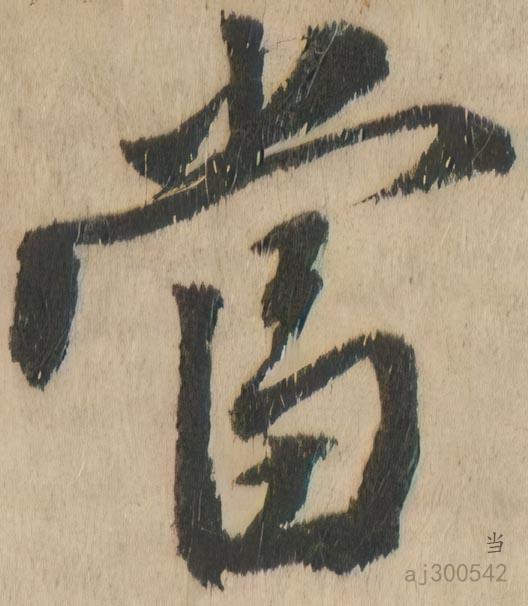 當
当
aj300542